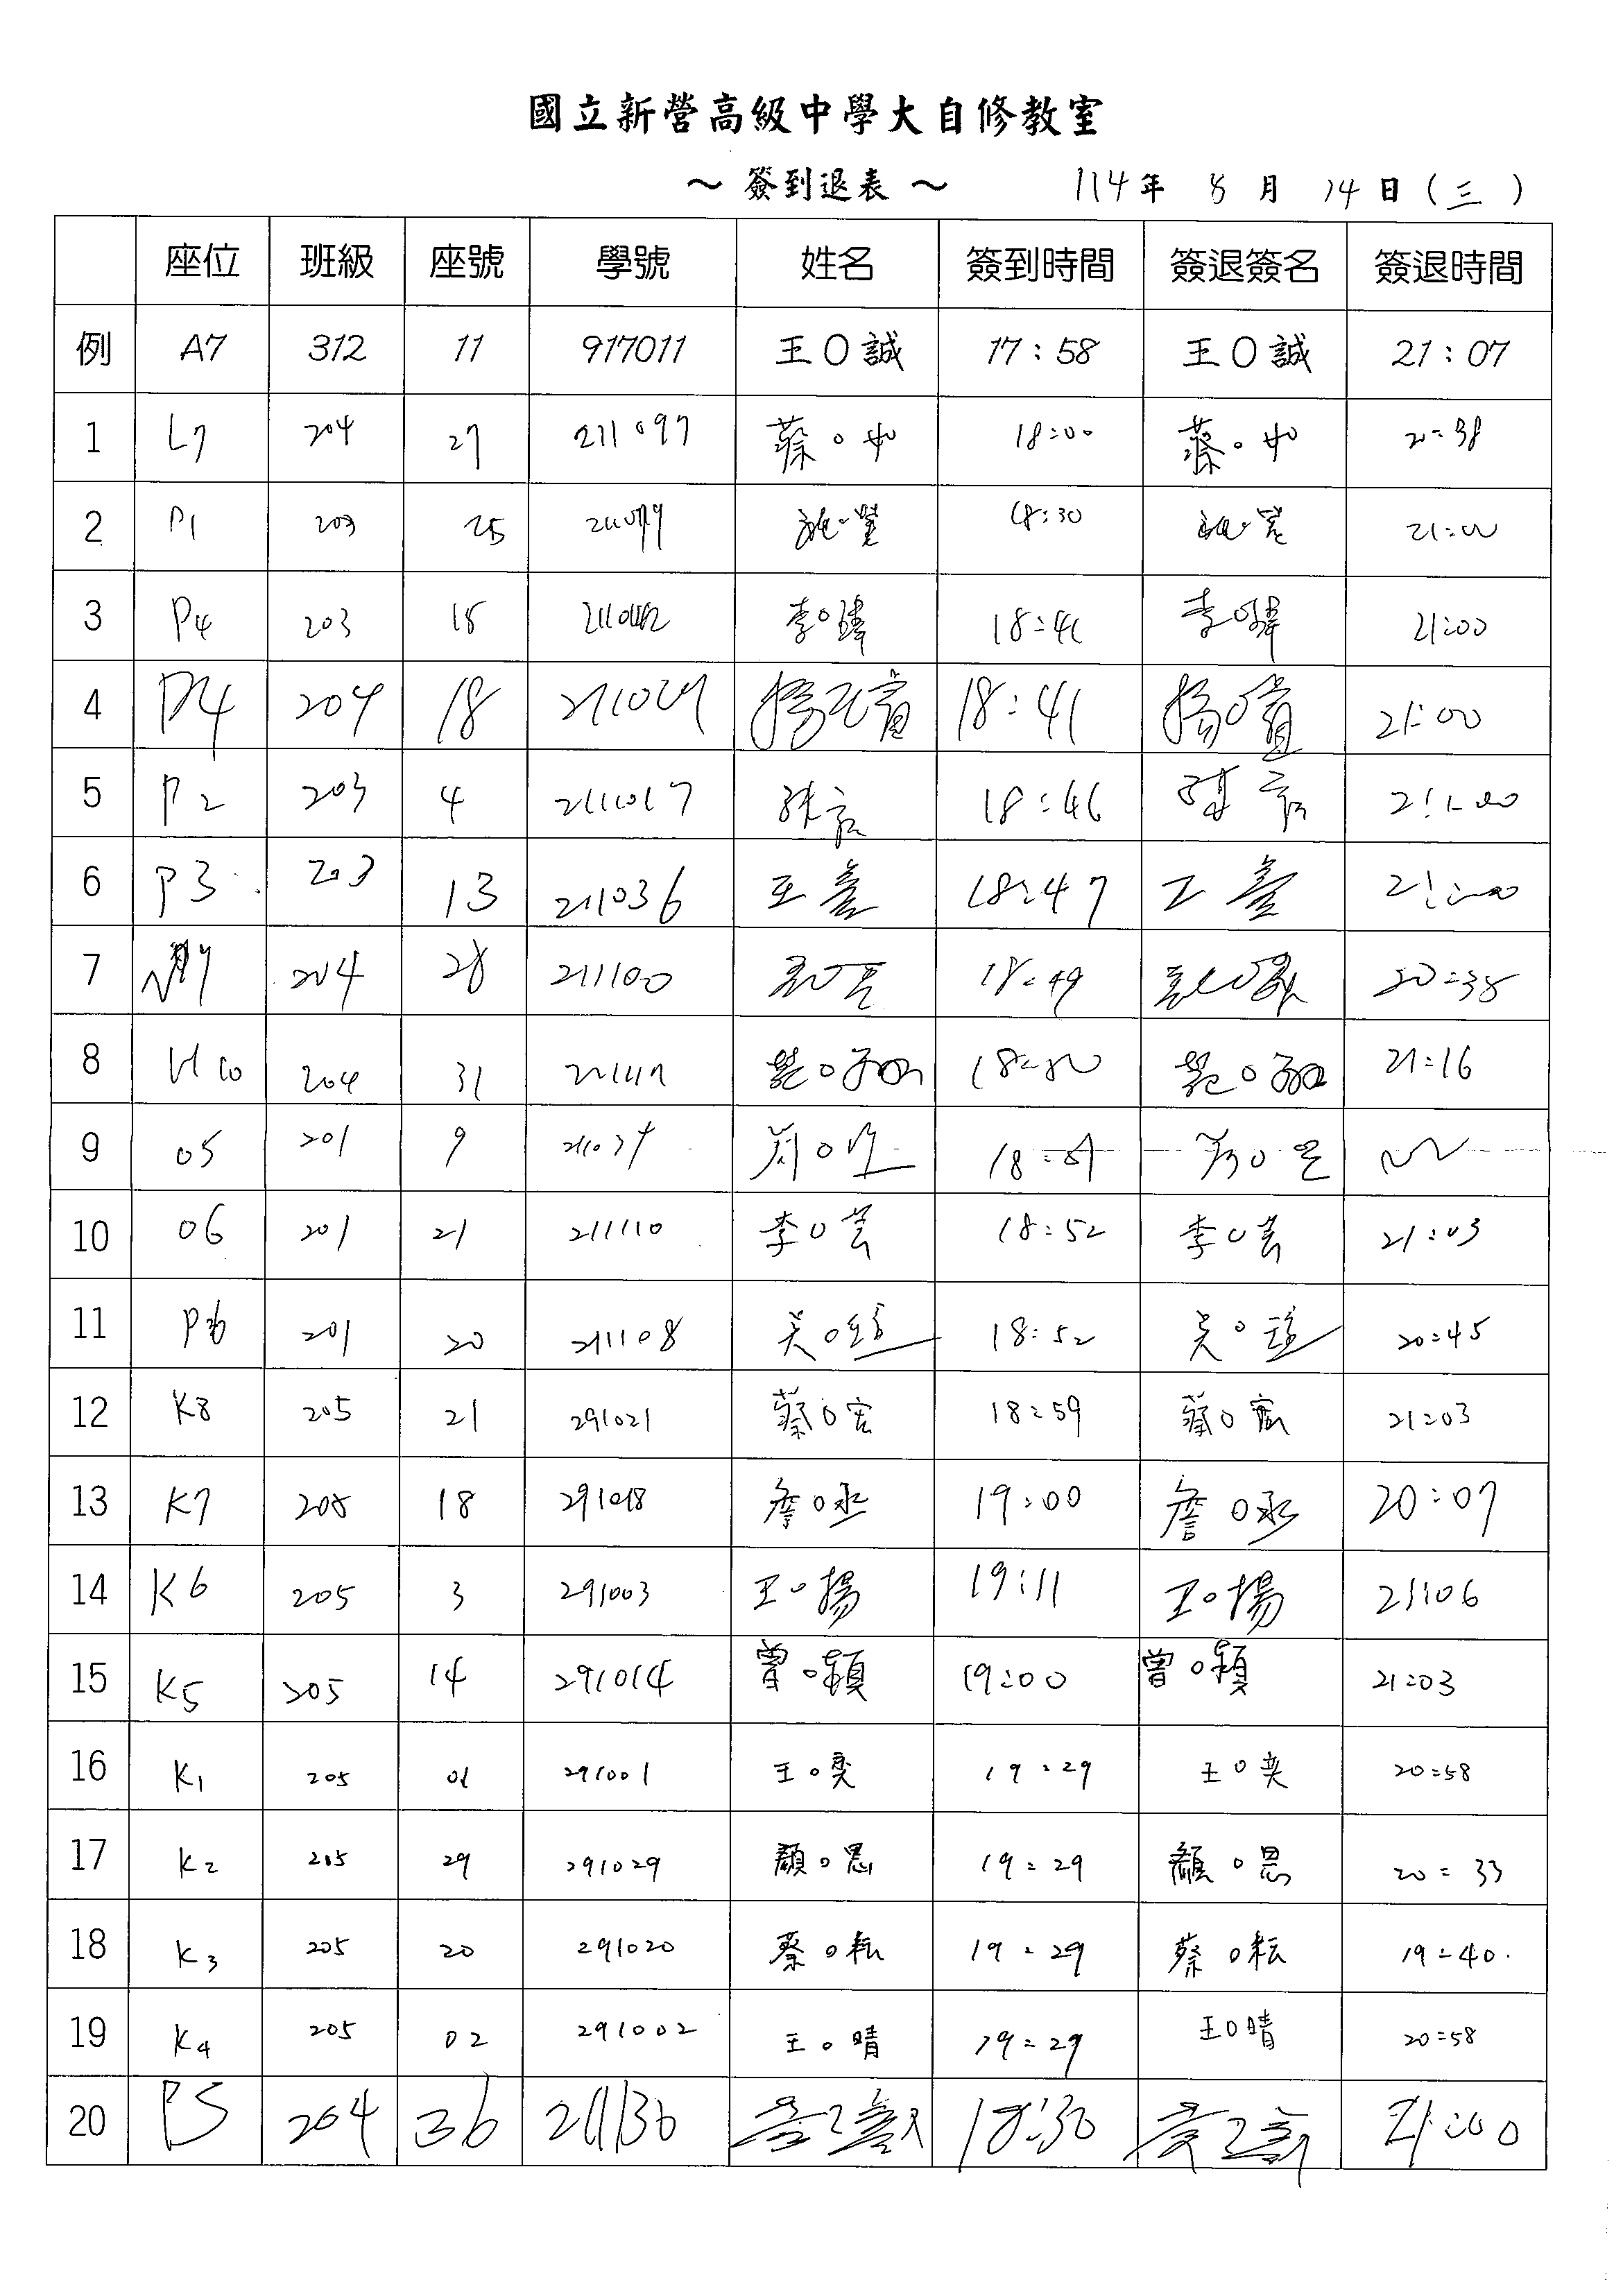 國立新營高級中學大自修教室
～ 簽到退表 ～ 114年 5月 14日(三)
座位 班級 座號 學號 姓名 簽到時間 簽退簽名 簽退時間
例 A7 312 11 917011 王〇誠 17:58 王〇誠 21:07
1 L7 204 27 211097 蔡〇 18:00 蔡〇 20:38
2 P1 203 25 18:30 21:00
3 P4 203 18 李〇 18:41 李〇 21:00
4 204 18 楊 18:41 楊〇 21:00
5 P2 203 4 211017 18:46 21:00
6 P3 203 13 211036 王 18:47 王 21:00
7 204 28 211100 18:49 20:38
8 204 31 21:16
9 O5 201 9 18:
10 O6 201 21 211110 李〇芸 18:52 李〇芸 21:03
11 P6 201 20 211108 吳〇 18:52 吳〇 20:45
12 K8 205 21 291021 蔡〇宏 18:59 蔡〇宏 21:03
13 K7 205 18 291018 詹〇丞 19:00 詹〇丞 20:07
14 K6 205 3 291003 王〇揚 19:11 王〇揚 21:06
15 K5 205 14 291014 曾〇穎 19:00 曾〇穎 21:03
16 K1 205 01 291001 王〇奕 19:29 王〇奕 20:58
17 K2 205 29 291029 顏〇恩 19:29 顏〇恩 20:33
18 K3 205 20 291020 蔡〇耘 19:29 蔡〇耘 19:40
19 K4 205 02 291002 王〇晴 19:29 王〇晴 20:58
20 P5 204 36 211136 18:30 21:00